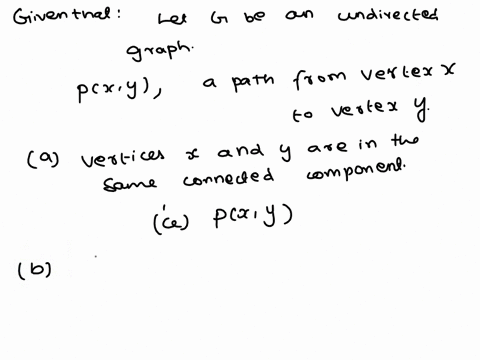 Given that: Let G be an undirected
graph.
P(x,y), a path from vertex x
to vertex y.
(a) vertices x and y are in the
same connected component.
(ie) P(x,y)
(b)